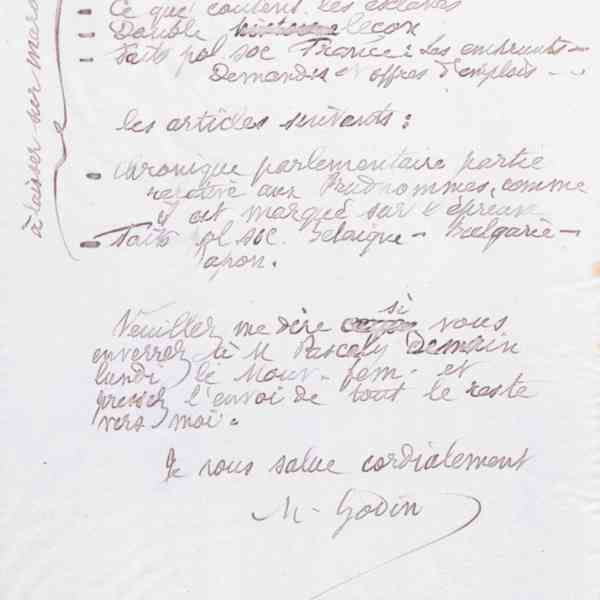 - Ce que coûtent les esclaves
- Double leçon
- Faits pol soc France: Les emprunts -
Demandes et offres d'emplois - .
les articles suivants :
- Chronique parlementaire partie
relative aux Prudhommes, comme
il est marqué sur l'épreuve
- Faits pol soc. Belgique - Bulgarie -
Japon.
Veuillez me dire si vous
enverrez à M Pascaly demain
lundi le Mouv. fém. et
presser l'envoi de tout le reste
vers moi.
Je vous salue cordialement
M. Godin
à laisser sur